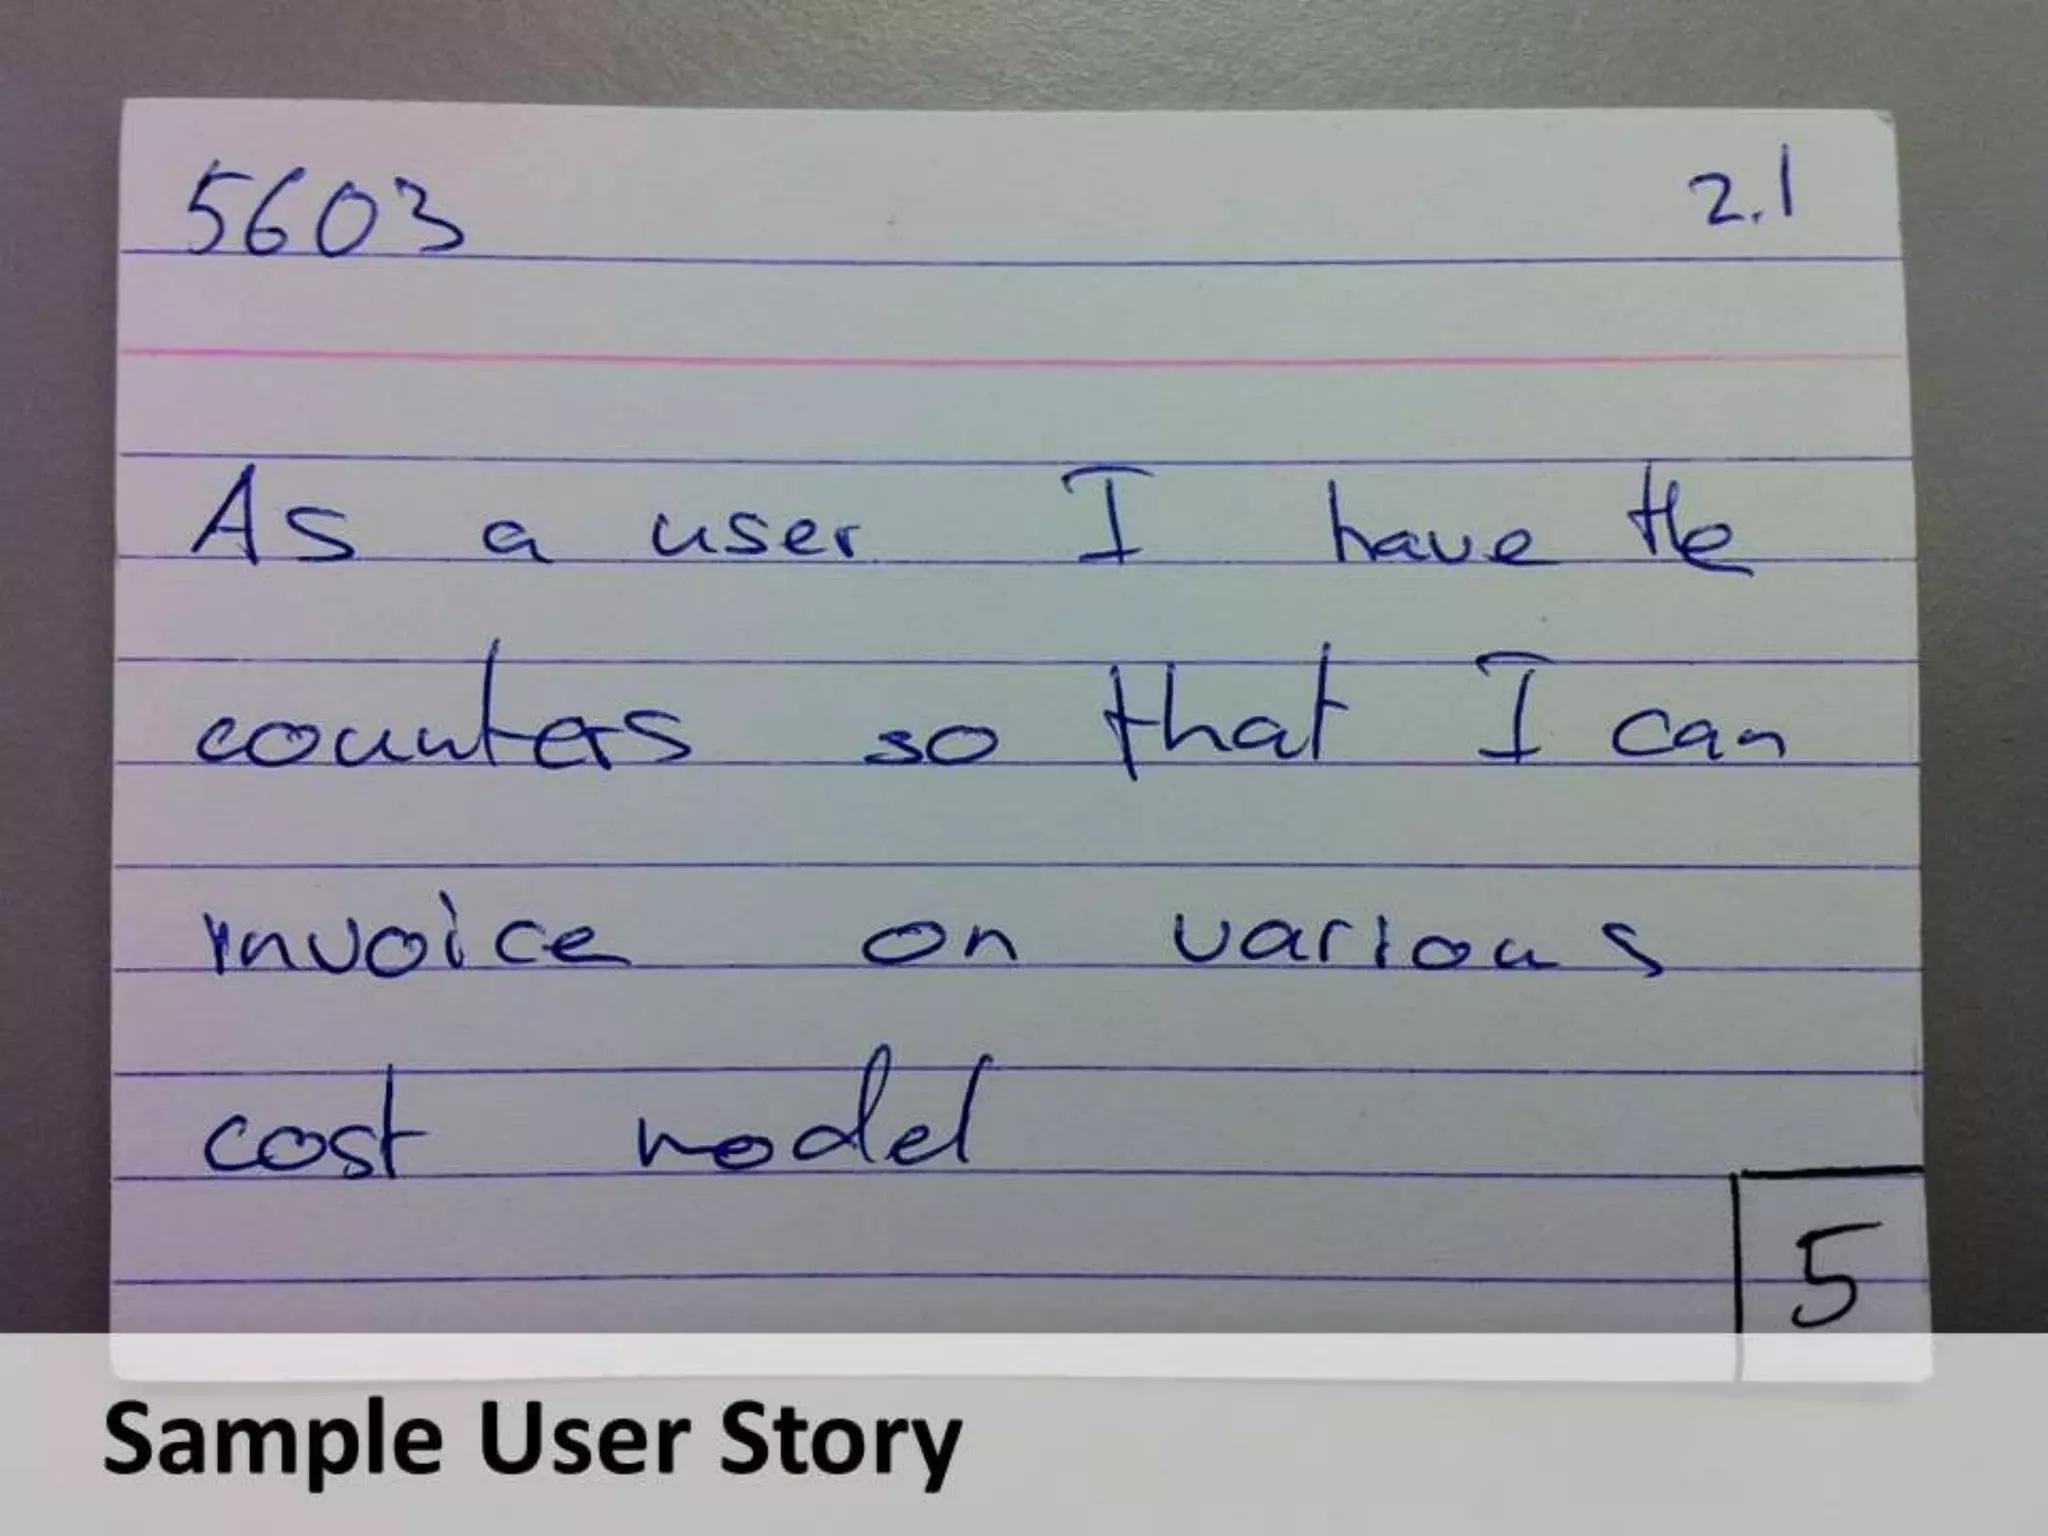 5603 2.1
As a user I have the
counters so that I can
invoice on various
cost model
5
Sample User Story